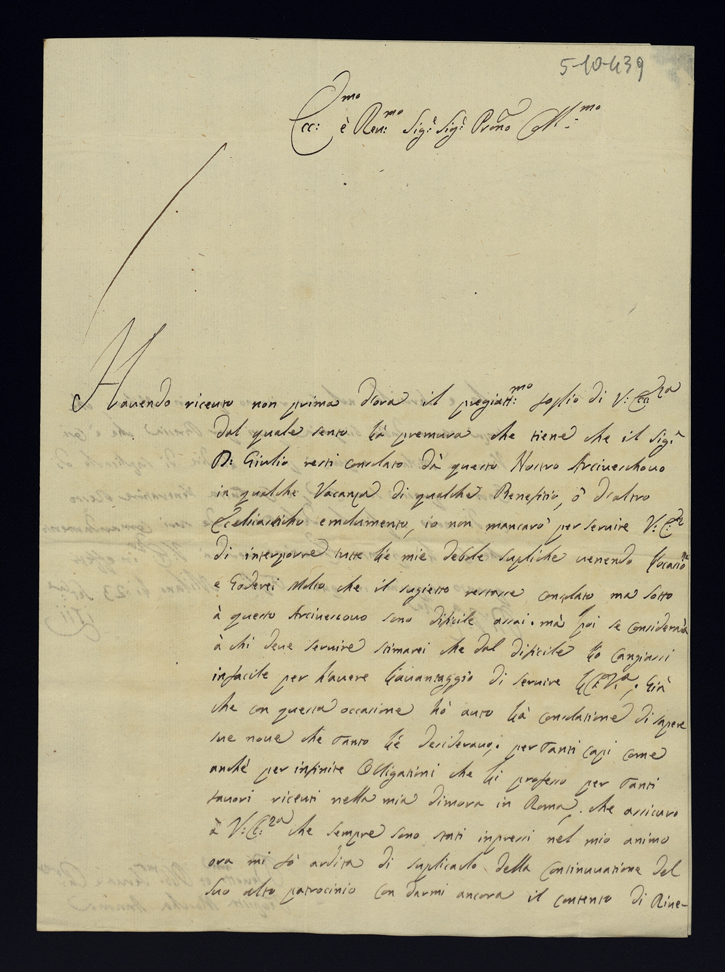 5-10-439
Ecc:mo è Reu:mo Sig.r Sig.r Prône
Hauendo riceuto non prima d'ora il pregiatt:mo foglio di V: Ecc:za
dal quale sento la premura che tiene che il Sig.r
D: Giulio resti consolato dà questo Nostro Arciuescouo
in qualche Vacanza di qualche Benefitio, ò d'altro
Eccl:iastico emolumento, io non mancarò per seruire V: Ecc:za
di interporre tutte le mie debole supliche uenendo
e Goderei Molto che il sugietto restasse consolato ma sotto
à questo Arciuescouo sono dificile assai. mà poi se considererà
à chi deue seruire stimarei che dal dificile lo cangiassi
infacile per hauere il auantaggio di seruire Già
che con questa occasione hò auto la consolatione di sapere
sue noue che tanto le desiderauo; per tanti capi come
anchè per infinite Obligationi che li professo per tanti
fauori riceuti nella mia dimora in Roma, che assicuro
à V: Ecc:za che sempre sono stati inpressi nel mio animo
ora mi fò ardita di suplicarlo della Continuatione del
suo alto patrocinio con darmi ancora il contento di Riue-